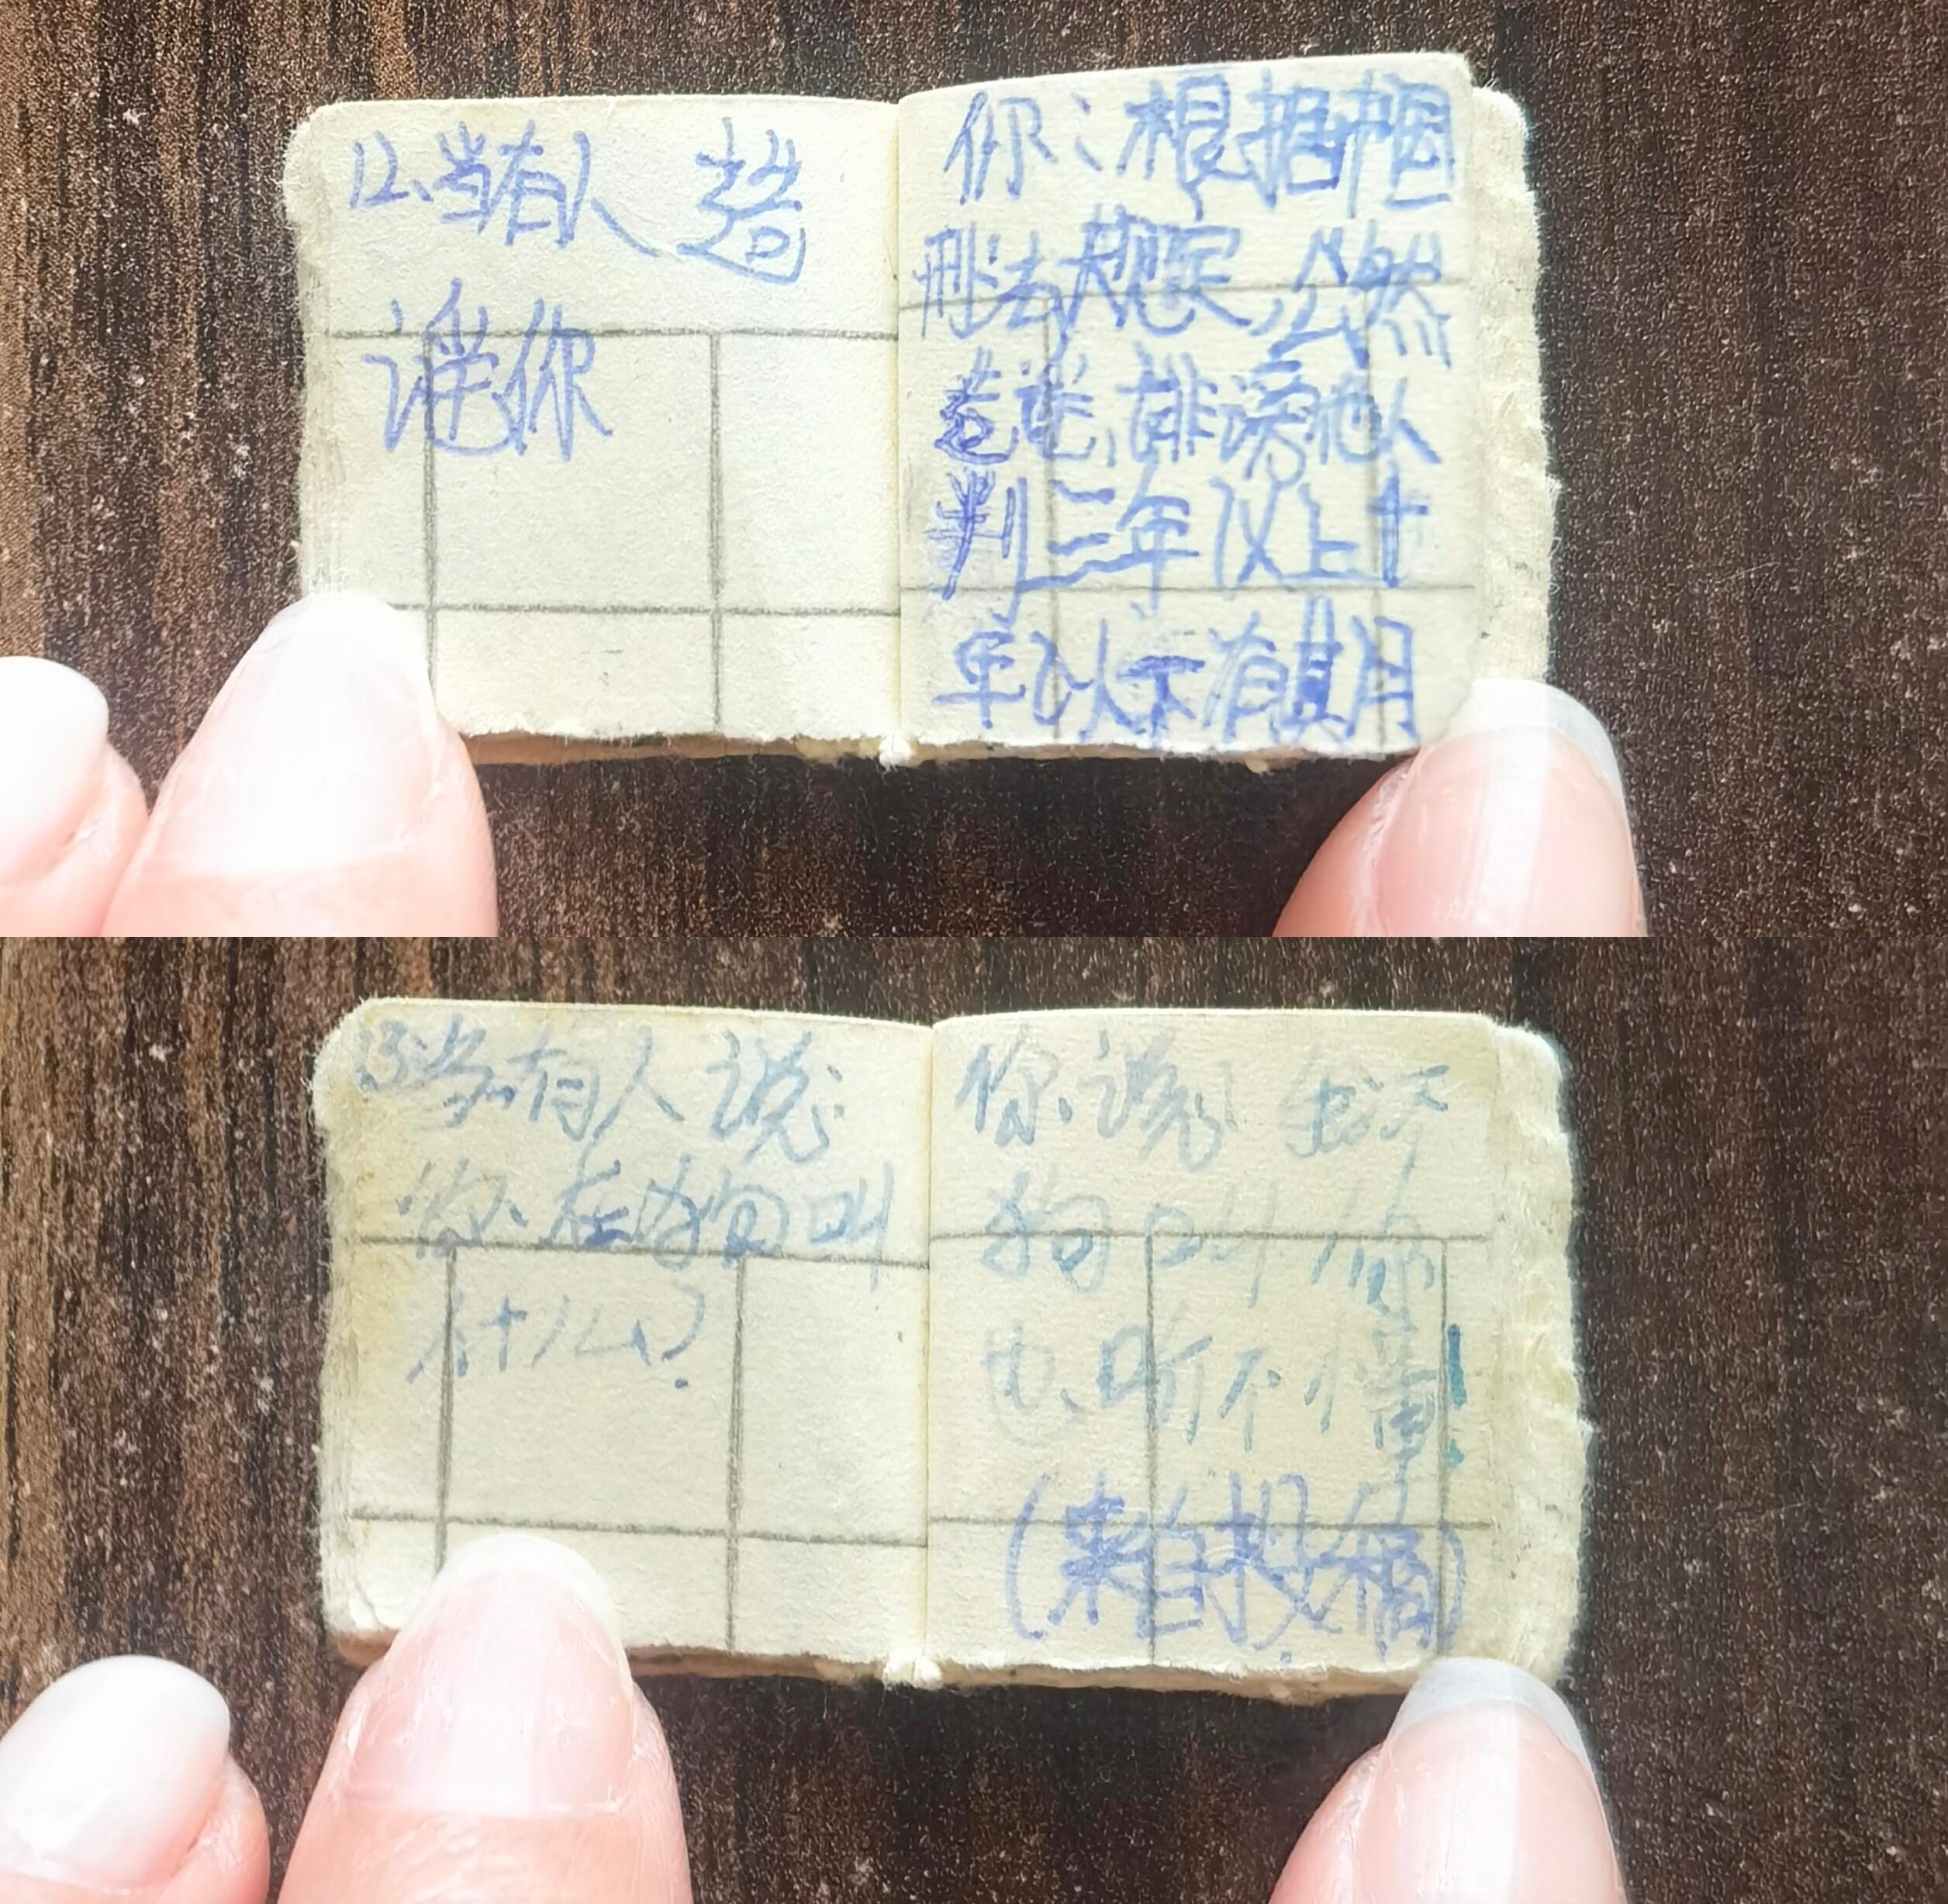 12、当有人 造
谣你
你:根据中国
刑法规定,公然
造谣,诽谤他人
判三年以上十
年以下有其月
13当有人说:
你在狗叫
什么?
你:说了
狗叫你
也听不懂!
(来自投稿)